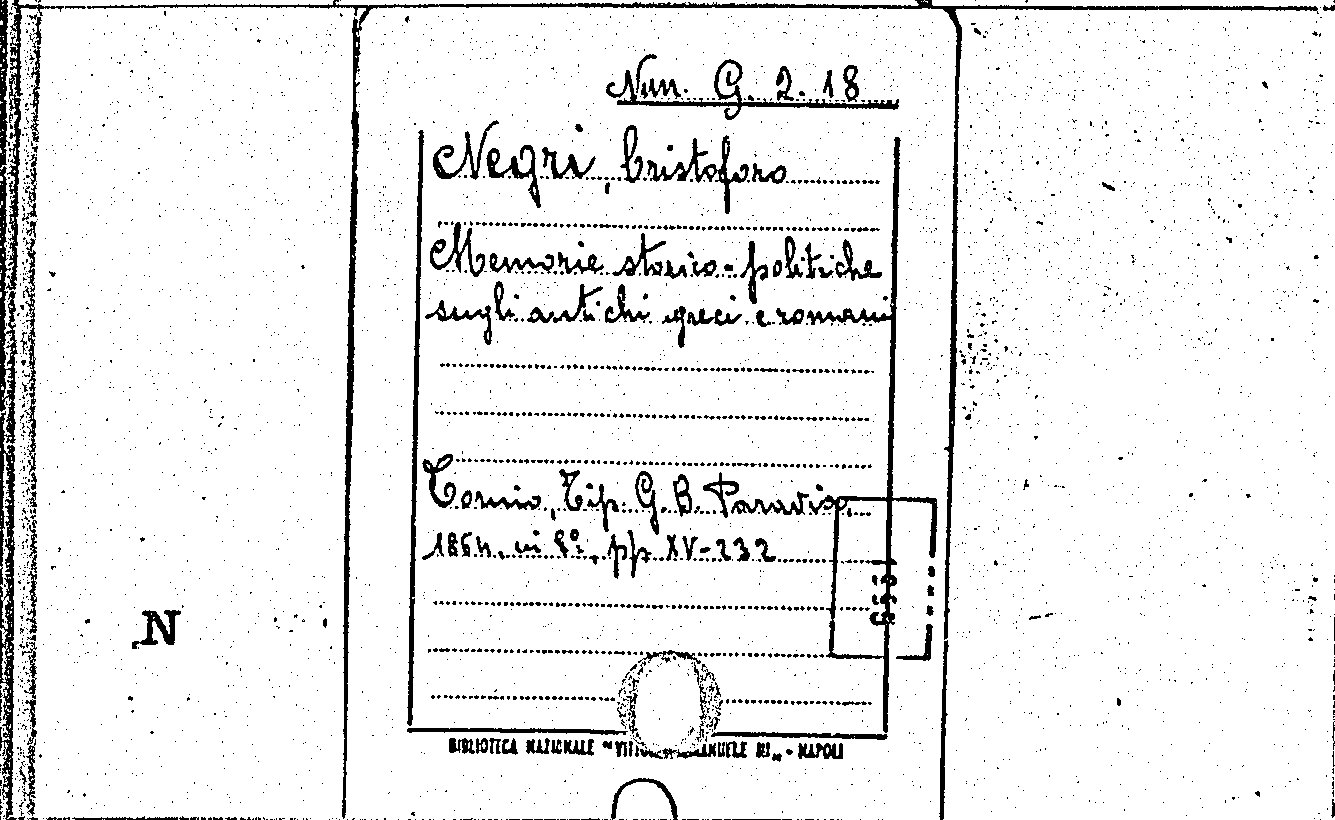 Nun. G. 2. 18
Negri, Cristoforo
Memorie storico-politiche
sugli antichi greci e romani
Torino, Tip. G. B. Paravia,
1864, in 8º, pp. XV-232
N
BIBLIOTECA NAZIONALE "VITTORIO EMANUELE III" - NAPOLI